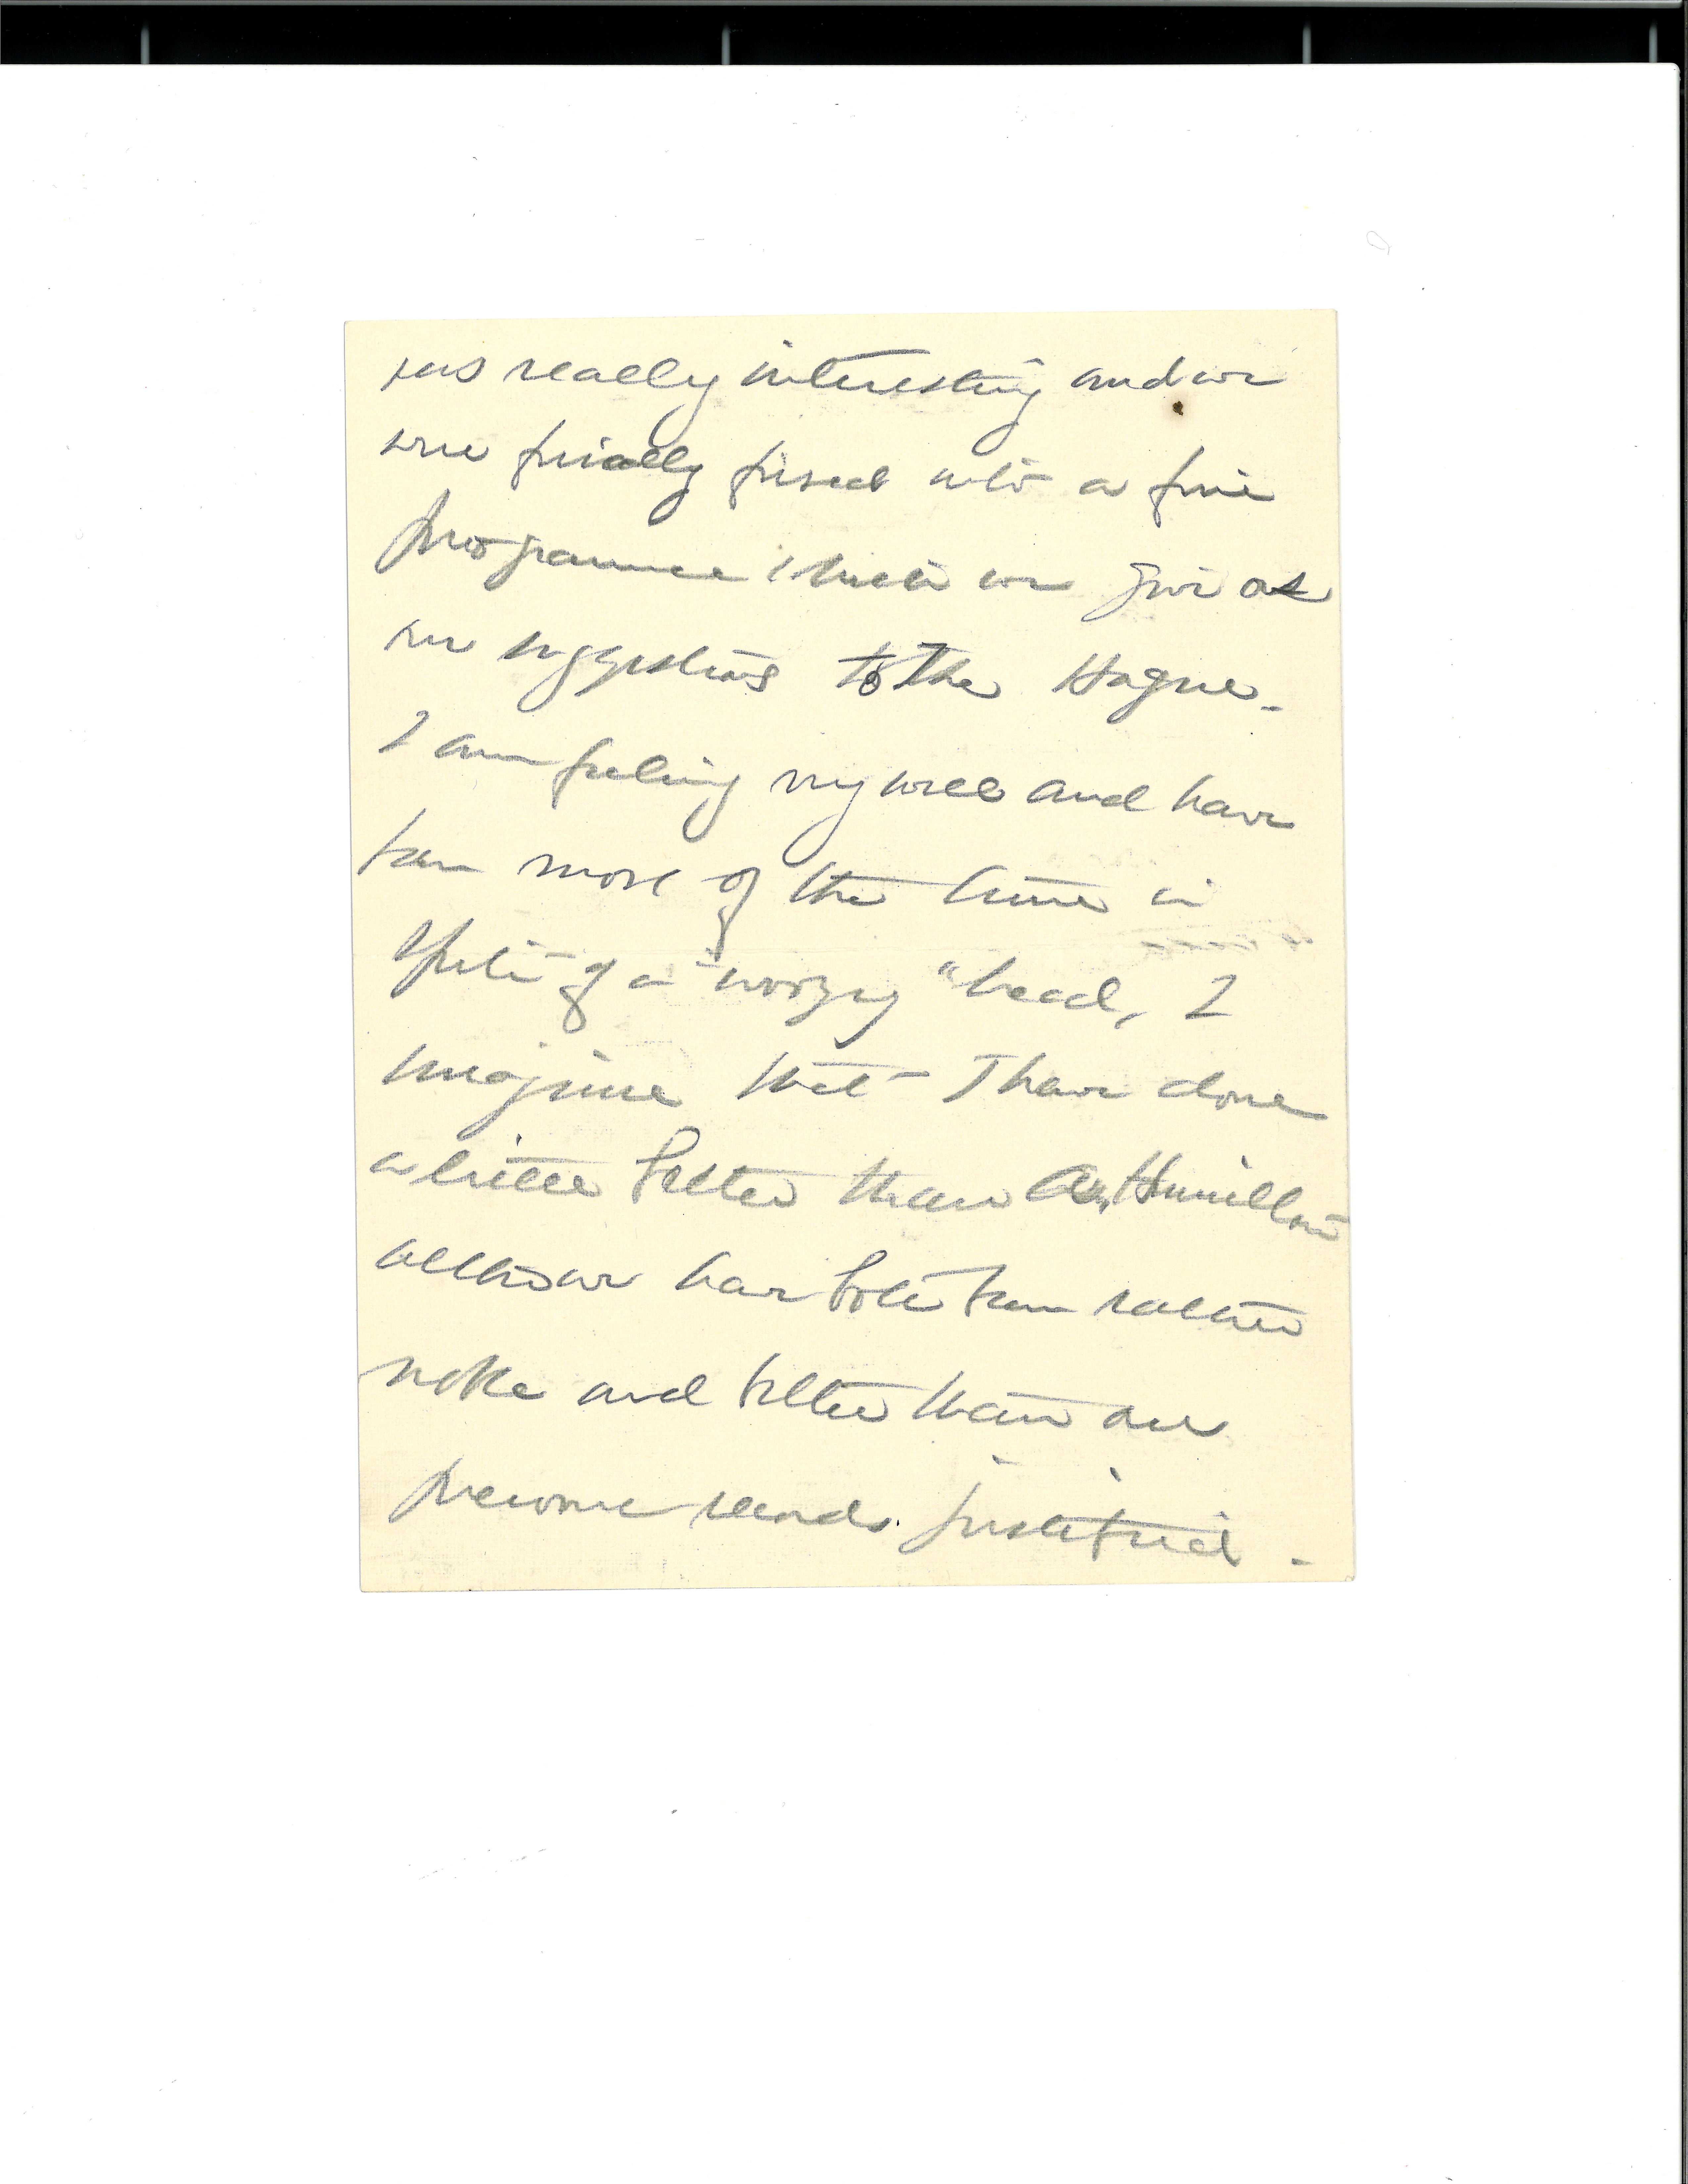 was really interesting and we
were finally fused into a fine
programme which we give as
our suggestions to The Hague.
I am feeling very well and have
been most of the time in
spite of a "woozy" head, I
imagine that I have done
a little better than A. Hamilton
altho we have both been rather
and better than our
previous records justified -